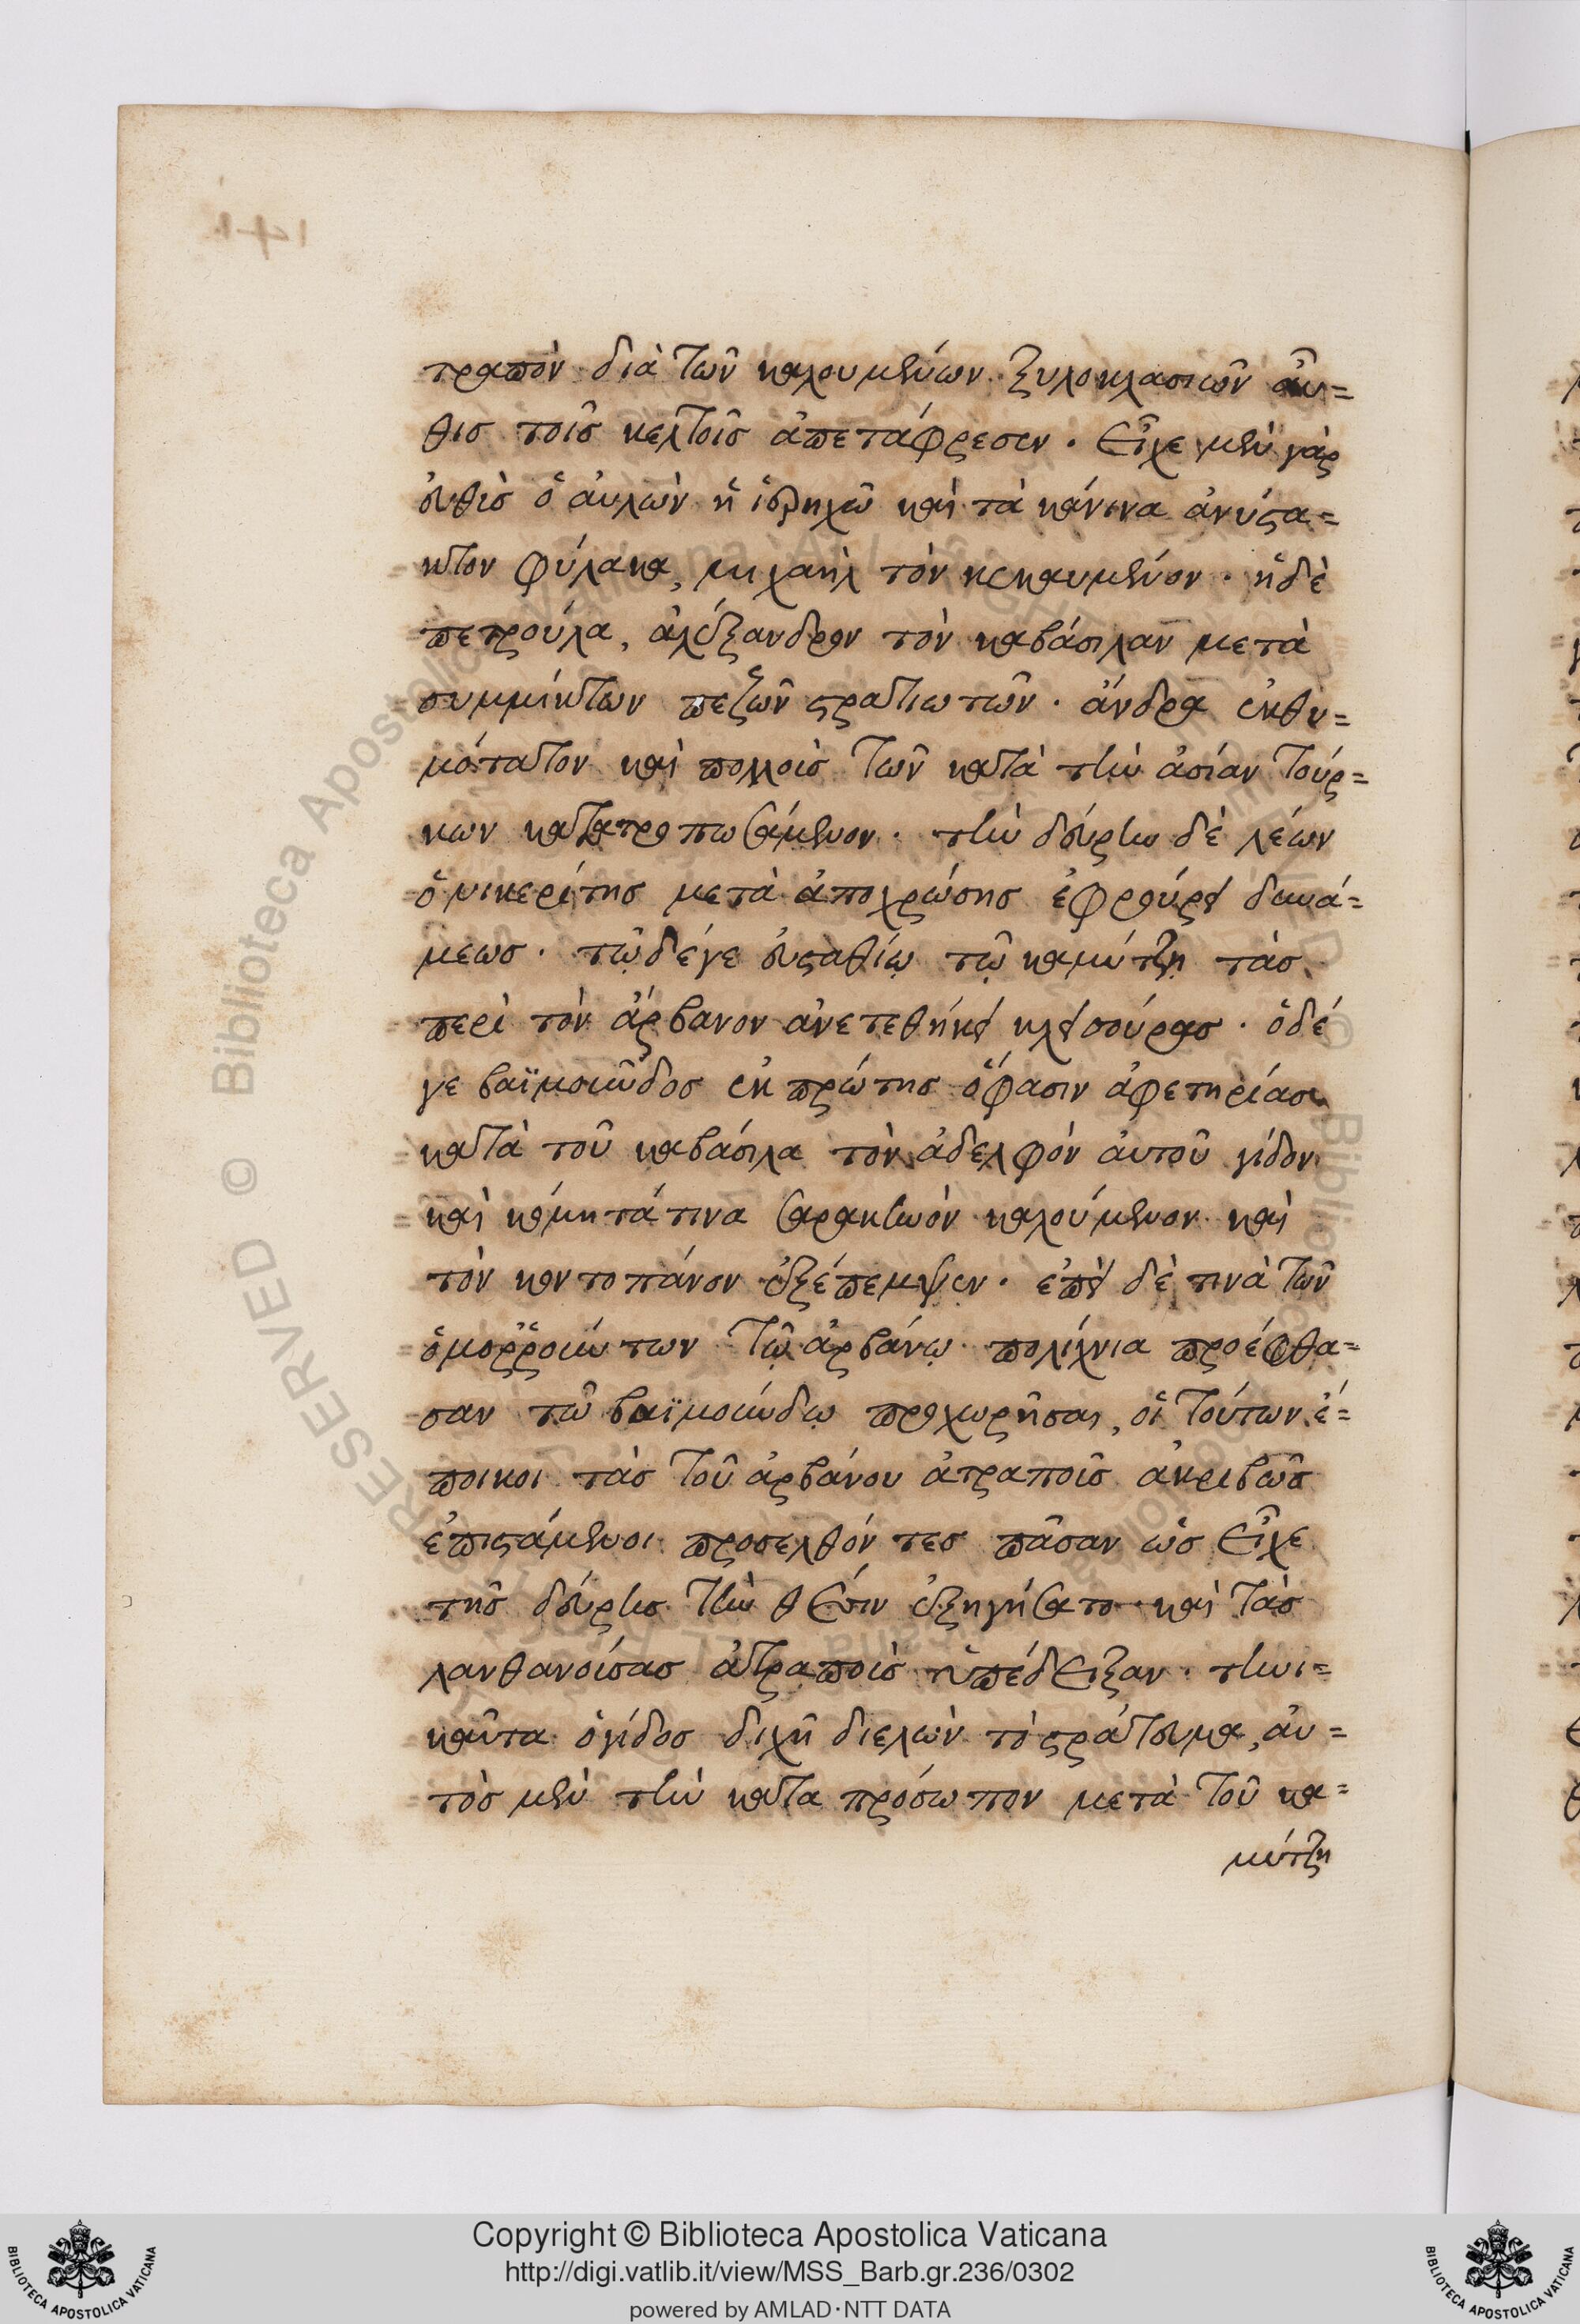 τραπὸν διὰ τῶν καλουμένων ξυλοκλασιῶν αὖ=
θισ τοῖς κελτοῖς ἀπετάφρευσεν. εἶχε μὲν γὰρ
εὐθὺς ὁ αὐλὼν ἡ ἱεριχὼ καὶ τὰ κάνινα ἀνύστα=
κτον φύλακα, μιχαὴλ τὸν κεκαυμένον. ἡ δὲ
πετρούλα, ἀλέξανδρον τὸν καβάσιλαν μετὰ
συμμίκτων πεζῶν στρατιωτῶν. ἄνδρα ἐκθυ=
μότατον καὶ πολλοὺς τῶν κατὰ τὴν ἀσίαν τούρ=
κων κατατροπωσάμενον. τὴν δεύρην δὲ λέων
ὁ νικερίτης μετὰ ἀποχρώσης ἐφρούρει δυνά=
μεως. τῷ δέγε εὐσταθίῳ τῷ καμύτζη τὰς
περὶ τὸν ἄρβανον ἀνετεθήκει κλεισούρας. ὁ δέ
γε βαϊμοῦνδος ἐκ πρώτης ὅ φασιν ἀφετηρίας
κατὰ τοῦ καβάσιλα τὸν ἀδελφὸν αὐτοῦ γίδον
καὶ κόμητά τινα σαρακηνὸν καλούμενον καὶ
τὸν κοντοπάνον ἐξέπεμψεν. ἐπεὶ δὲ τινὰ τῶν
ὁμορρούντων τῷ ἀρβάνῳ πολίχνια προέφθα=
σαν τῷ βαϊμούνδῳ προχωρῆσαι, οἱ τούτων ἔ=
ποικοι τὰς τοῦ ἀρβάνου ἀτραποὺς ἀκριβῶς
ἐπιστάμενοι προσελθόντες πᾶσαν ὡς εἶχε
τῆς δεύρης τὴν θέσιν ἐξηγήσατο καὶ τὰς
λανθανούσας ἀτραποὺς ὑπέδειξαν. τηνι=
καῦτα ὁ γίδος διχῆ διελὼν τὸ στράτευμα, αὐ=
τὸς μὲν τὴν κατα πρόσωπον μετὰ τοῦ κα=
μύτζη
Copyright © Biblioteca Apostolica Vaticana
http://digi.vatlib.it/view/MSS_Barb.gr.236/0302
powered by AMLAD·NTT DATA